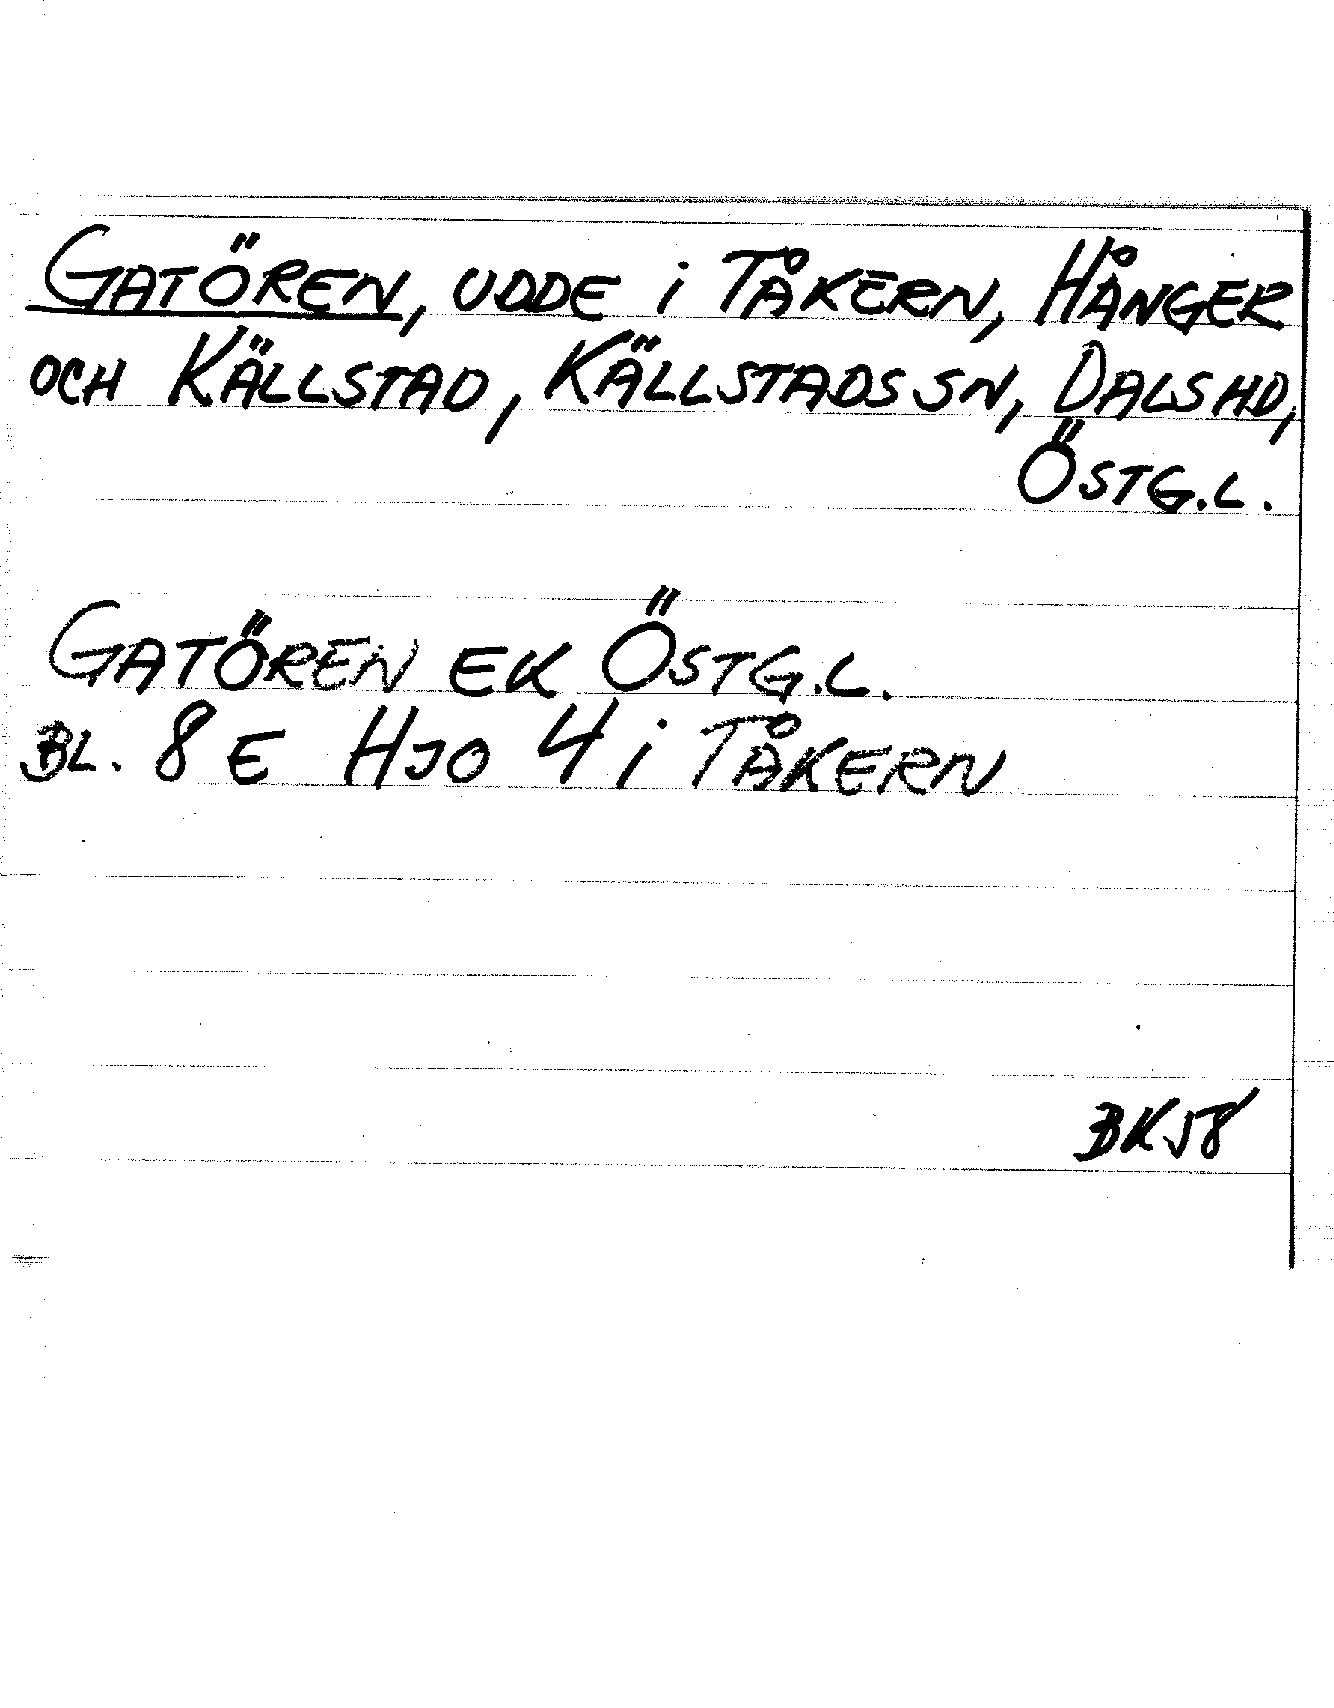 GATÖREN, UDDE i TÅKERN, HÅNGER
OCH KÄLLSTAD, KÄLLSTADS SN, DALS HD,
ÖSTG.L.
GATÖREN EK ÖSTG.L.
BL. 8 E HJO 4 i TÅKERN
BK58